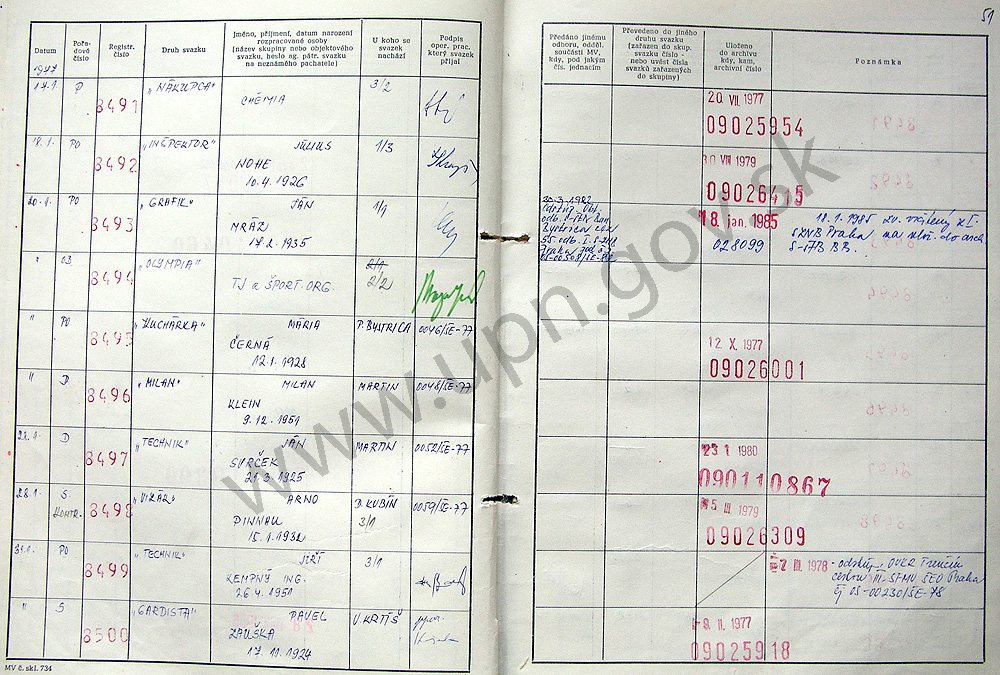 51
Datum
Pořa-
dové
číslo
Registr.
číslo
Druh svazku
jméno, příjmení, datum narození
rozpracované osoby
(název skupiny nebo objektového
svazku, heslo ag. pátr. svazku
na neznámého pachatele)
U koho se
svazek
nachází
Podpis
oper. prac.
který svazek
přijal
Předáno jinému
odboru, odděl.
součásti MV,
kdy, pod jakým
čís. jednacím
Převedeno do jiného
druhu svazku
(zařazen do skup.
svazku číslo -
nebo uvést čísla
svazků zařazených
do skupiny)
Uloženo
do archivu
kdy, kam,
archivní číslo
Poznámka
1977
17.1 P 8491 „NÁKUPCA" CHÉMIA 3/2
20. VII. 1977
09025954
18.1. PO 8492 „INŠPEKTOR" JÚLIUS 1/3
NOHE
10.4.1926
30 VIII 1979
09026415
20.1. PO 8493 „GRAFIK" JÁN 1/1
MRÁZ
18 jan. 1985
028099
18.1.1985 zv. vrátený z I.
SZNB Praha na ulož. do arch
" OB 8494 „OLYMPIA" 2/1
TJ a ŠPORT. ORG. 2/2
" PO 8495 „KUCHÁRKA" MÁRIA P. BYSTRICA 0046/ŠE-77
ČERNÁ
12.1.1928
12 X. 1977
09026001
" D 8496 „MILAN" MILAN MARTIN 0048/ŠE-77
KLEIN
9.12.1951
D 8497 „TECHNIK" JÁN MARTIN 0052/ŠE-77
SVRČEK
21.3.1925
23 1 1980
090110867
28.1. S 8498 ARNO D. KUBÍN 0059/ŠE-77
KONTR. PINNAU 3/1
15.1.1932
5 III 1979
09026309
31.1. PO 8499 „TECHNIK" JIŘÍ 3/1
KEMPNÝ ING.
26.4.1951
III 1978 - odstúp. OVKR Trenčín
čj OS-00230/ŠE-78
" S 8500 „GARDISTA" PAVEL V. KRTÍŠ
ZAUŠKA
17.11.1924
9. II. 1977
09025918
MV č. skl. 734
www.upn.gov.sk